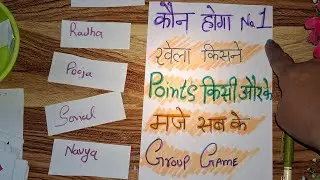 Radha
Pooja
Sonal
Navya
कौन होगा No 1
खेला किसने
Points किसी और के
मजे सब के
Group Game